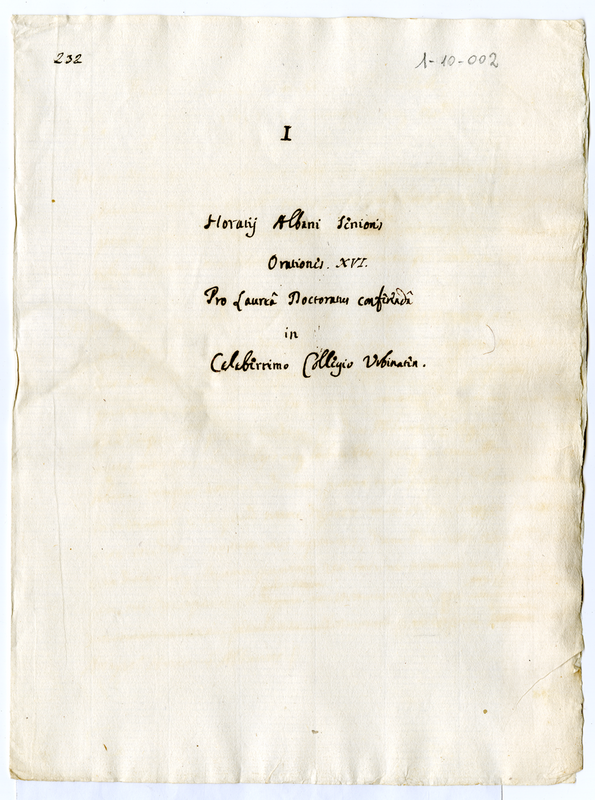 232
1-10-002
I
Horatij Albani Senioris
Orationes. XVI.
Pro Laureâ Doctoratus conferēdâ
in
Celeberrimo Collegio Urbinaten.